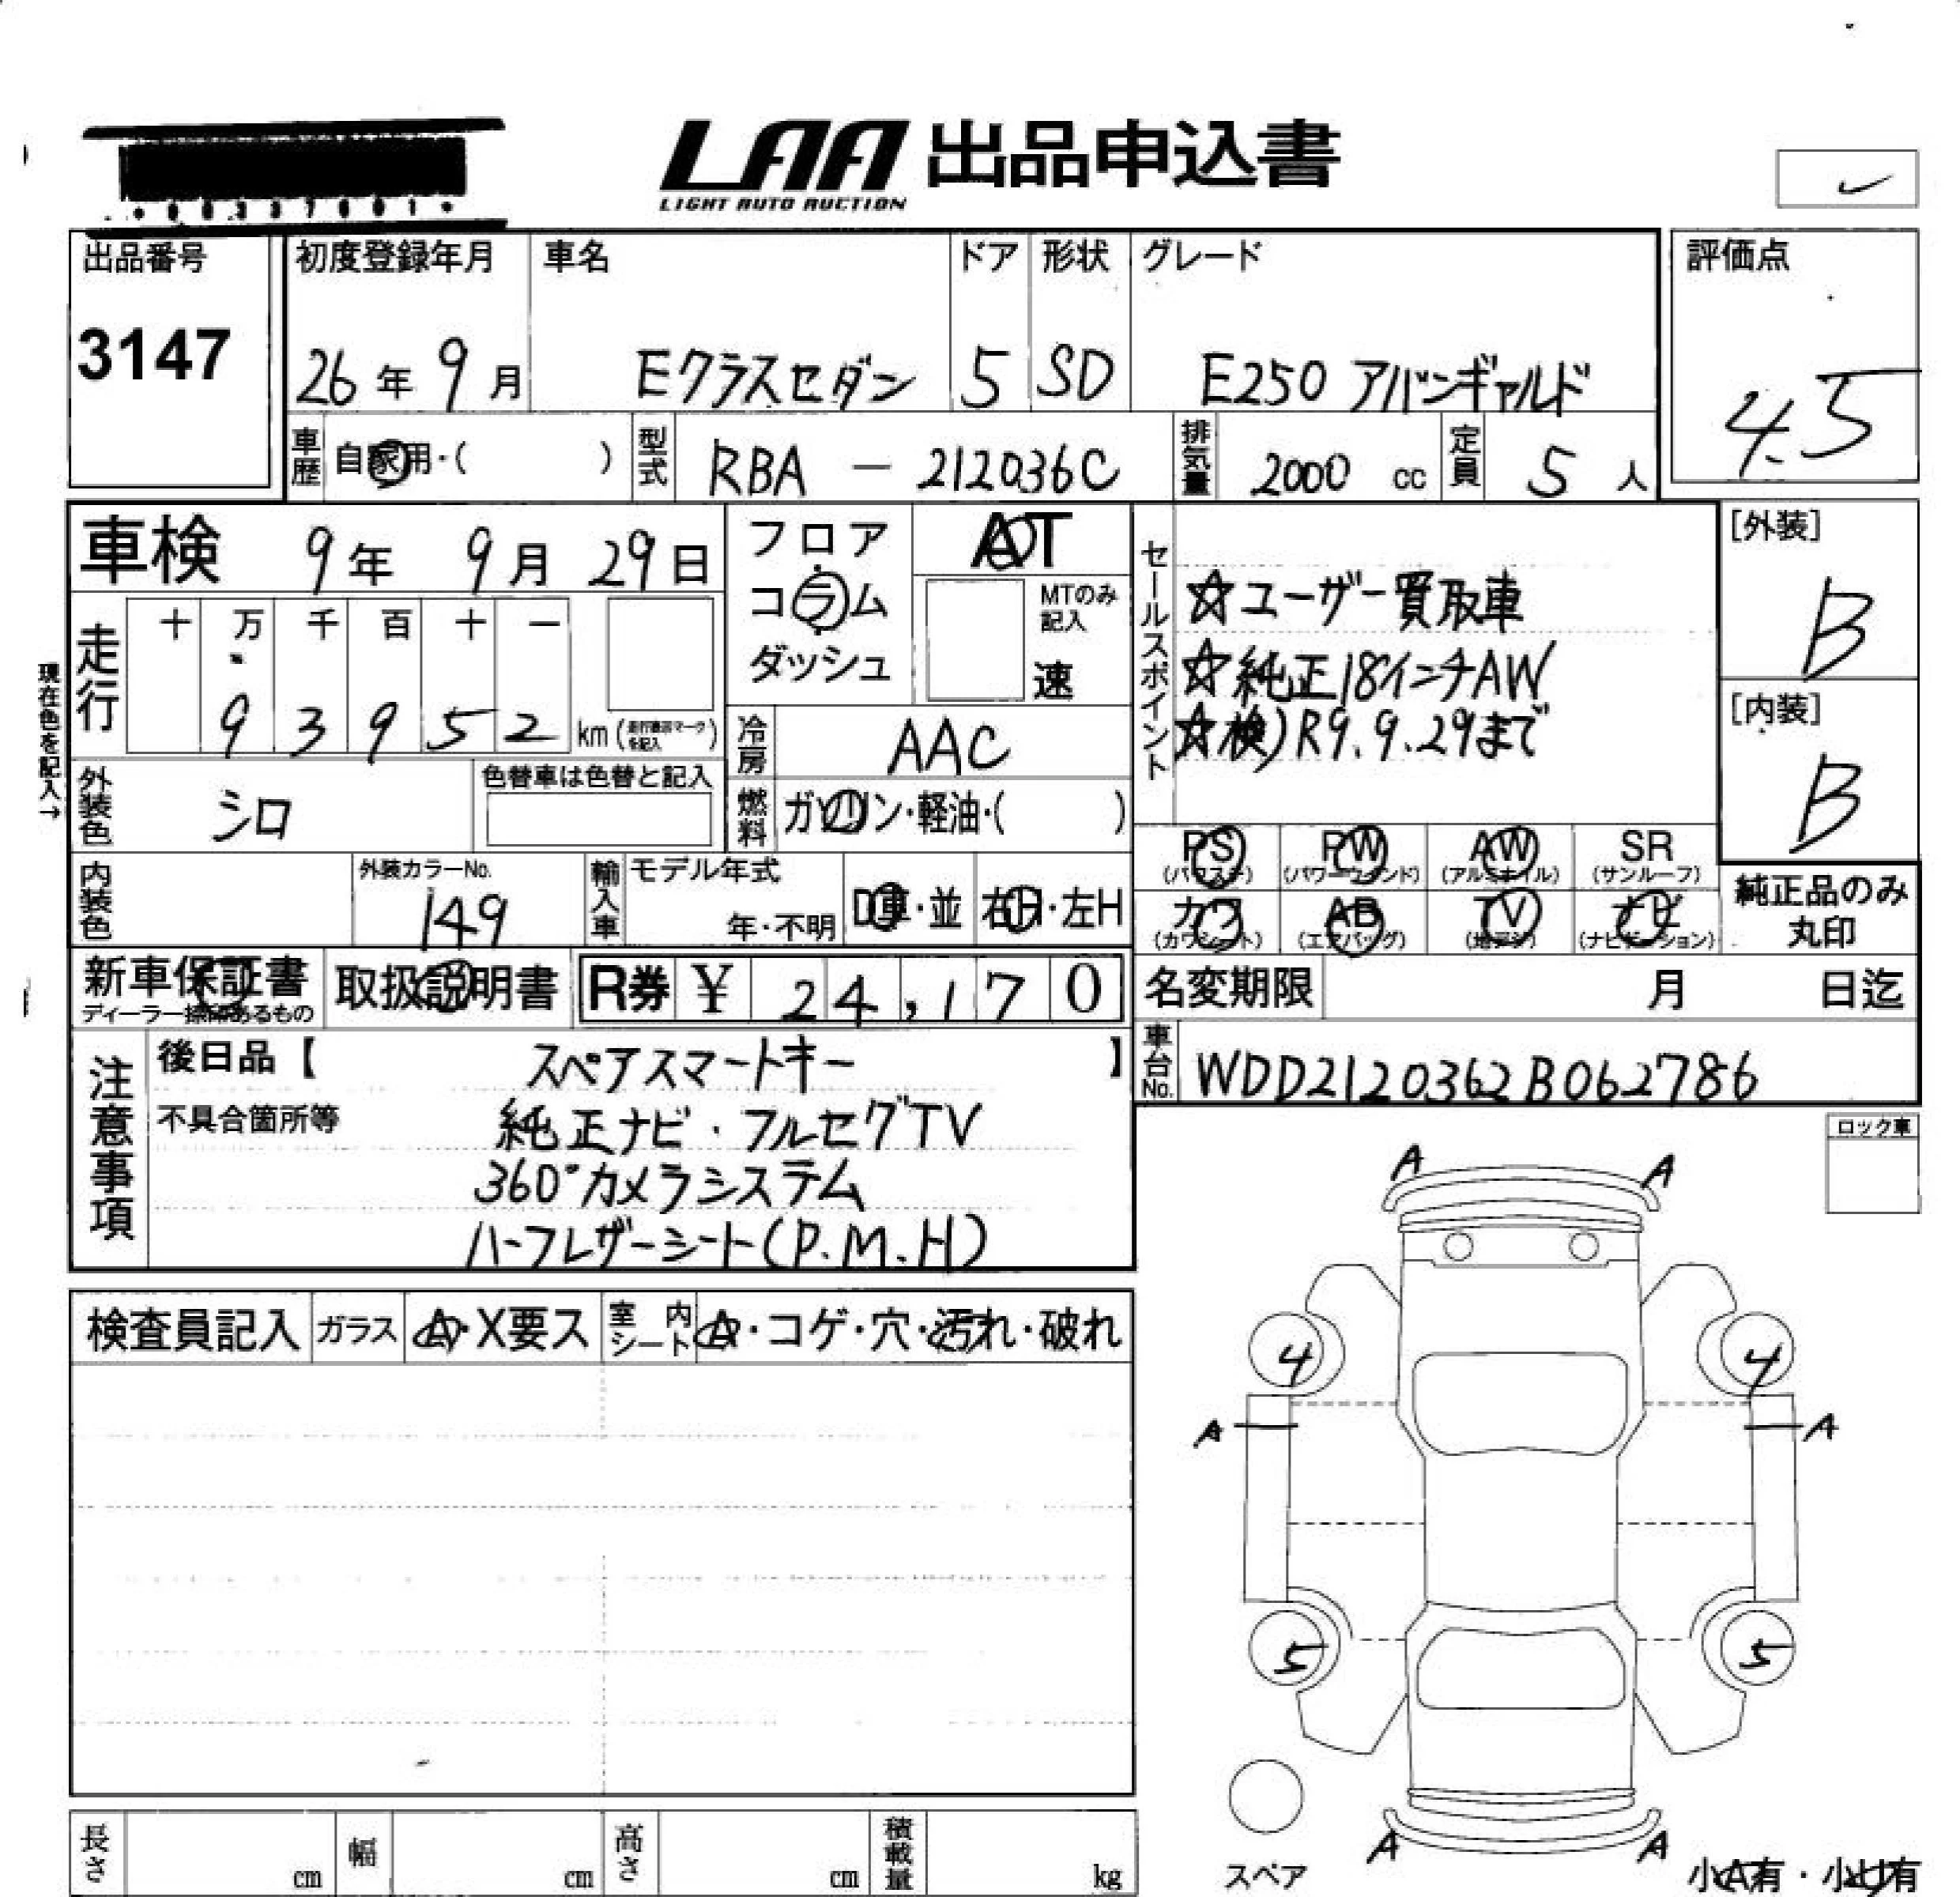 LAA 出品申込書
LIGHT AUTO AUCTION
出品番号
3147
初度登録年月 車名 ドア 形状 グレード
26年 9月 Eクラスセダン 5 SD E250 アバンギャルド
評価点
4.5
車歴 自家用・( ) 型式 RBA - 212036C 排気量 2000 cc 定員 5 人
車検 9年 9月 29日
フロア
コラム
ダッシュ
AT
MTのみ
記入
速
セールスポイント
☆ユーザー買取車
☆純正18インチAW
☆検)R9.9.29まで
[外装]
B
[内装]
B
現在色を記入→
走行 十 万 千 百 十 一
9 3 9 5 2 km
冷房 AAC
外装色 シロ 色替車は色替と記入
燃料 ガソリン・軽油・( )
PS PW AW SR
(パワステ) (パワーウインド) (アルミホイル) (サンルーフ)
カワ AB TV ナビ
(カワシート) (エアバッグ) (地デジ) (ナビゲーション)
純正品のみ
丸印
内装色 外装カラーNo. 149 輸入車 モデル年式 年・不明 D車・並 右H・左H
新車保証書 取扱説明書 R券 ¥ 24,170
名変期限 月 日迄
車台No. WDD2120362B062786
注意事項
後日品【 スペアスマートキー 】
不具合箇所等 純正ナビ・フルセグTV
360°カメラシステム
ハーフレザーシート(P.M.H)
ロック車
A A
検査員記入 ガラス A・X要ス 室内シート A・コゲ・穴・汚れ・破れ
4 4
A A
5 5
A A
スペア
小A有・小U有
長さ cm 幅 cm 高さ cm 積載量 kg